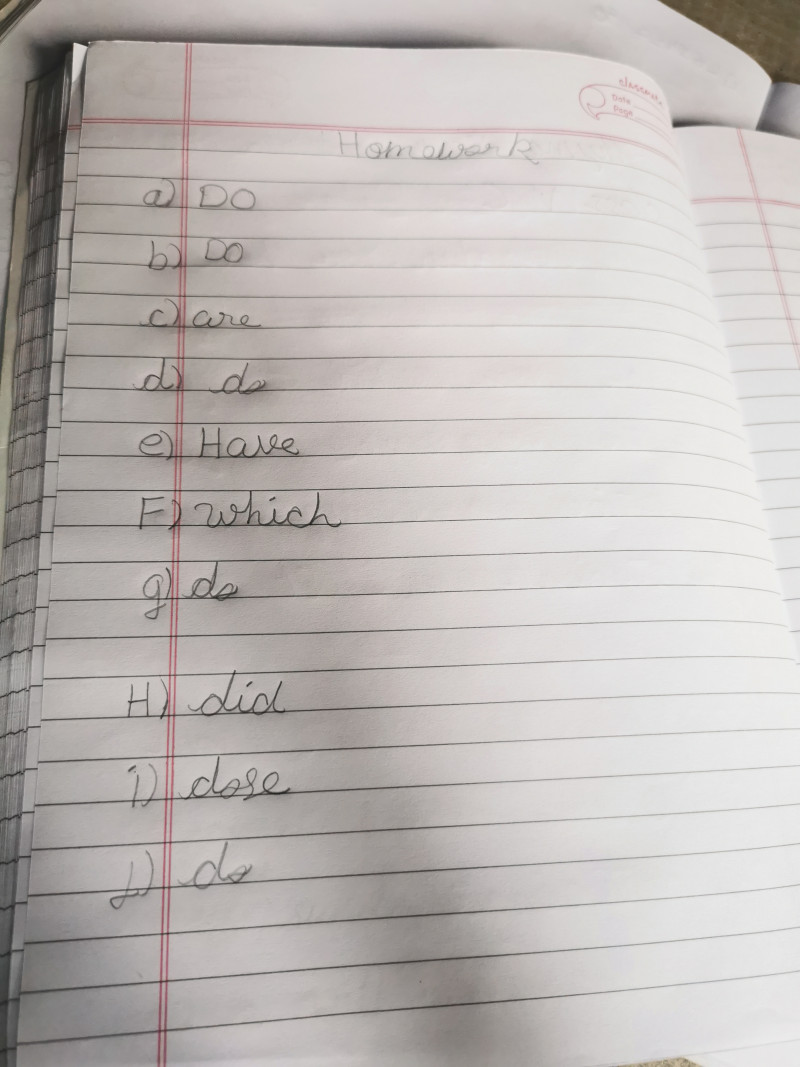 classmate
Date
Page
Homework
a) DO
b) DO
c) are
d) do
e) Have
F) which
g) do
H) did
i) dose
j) do